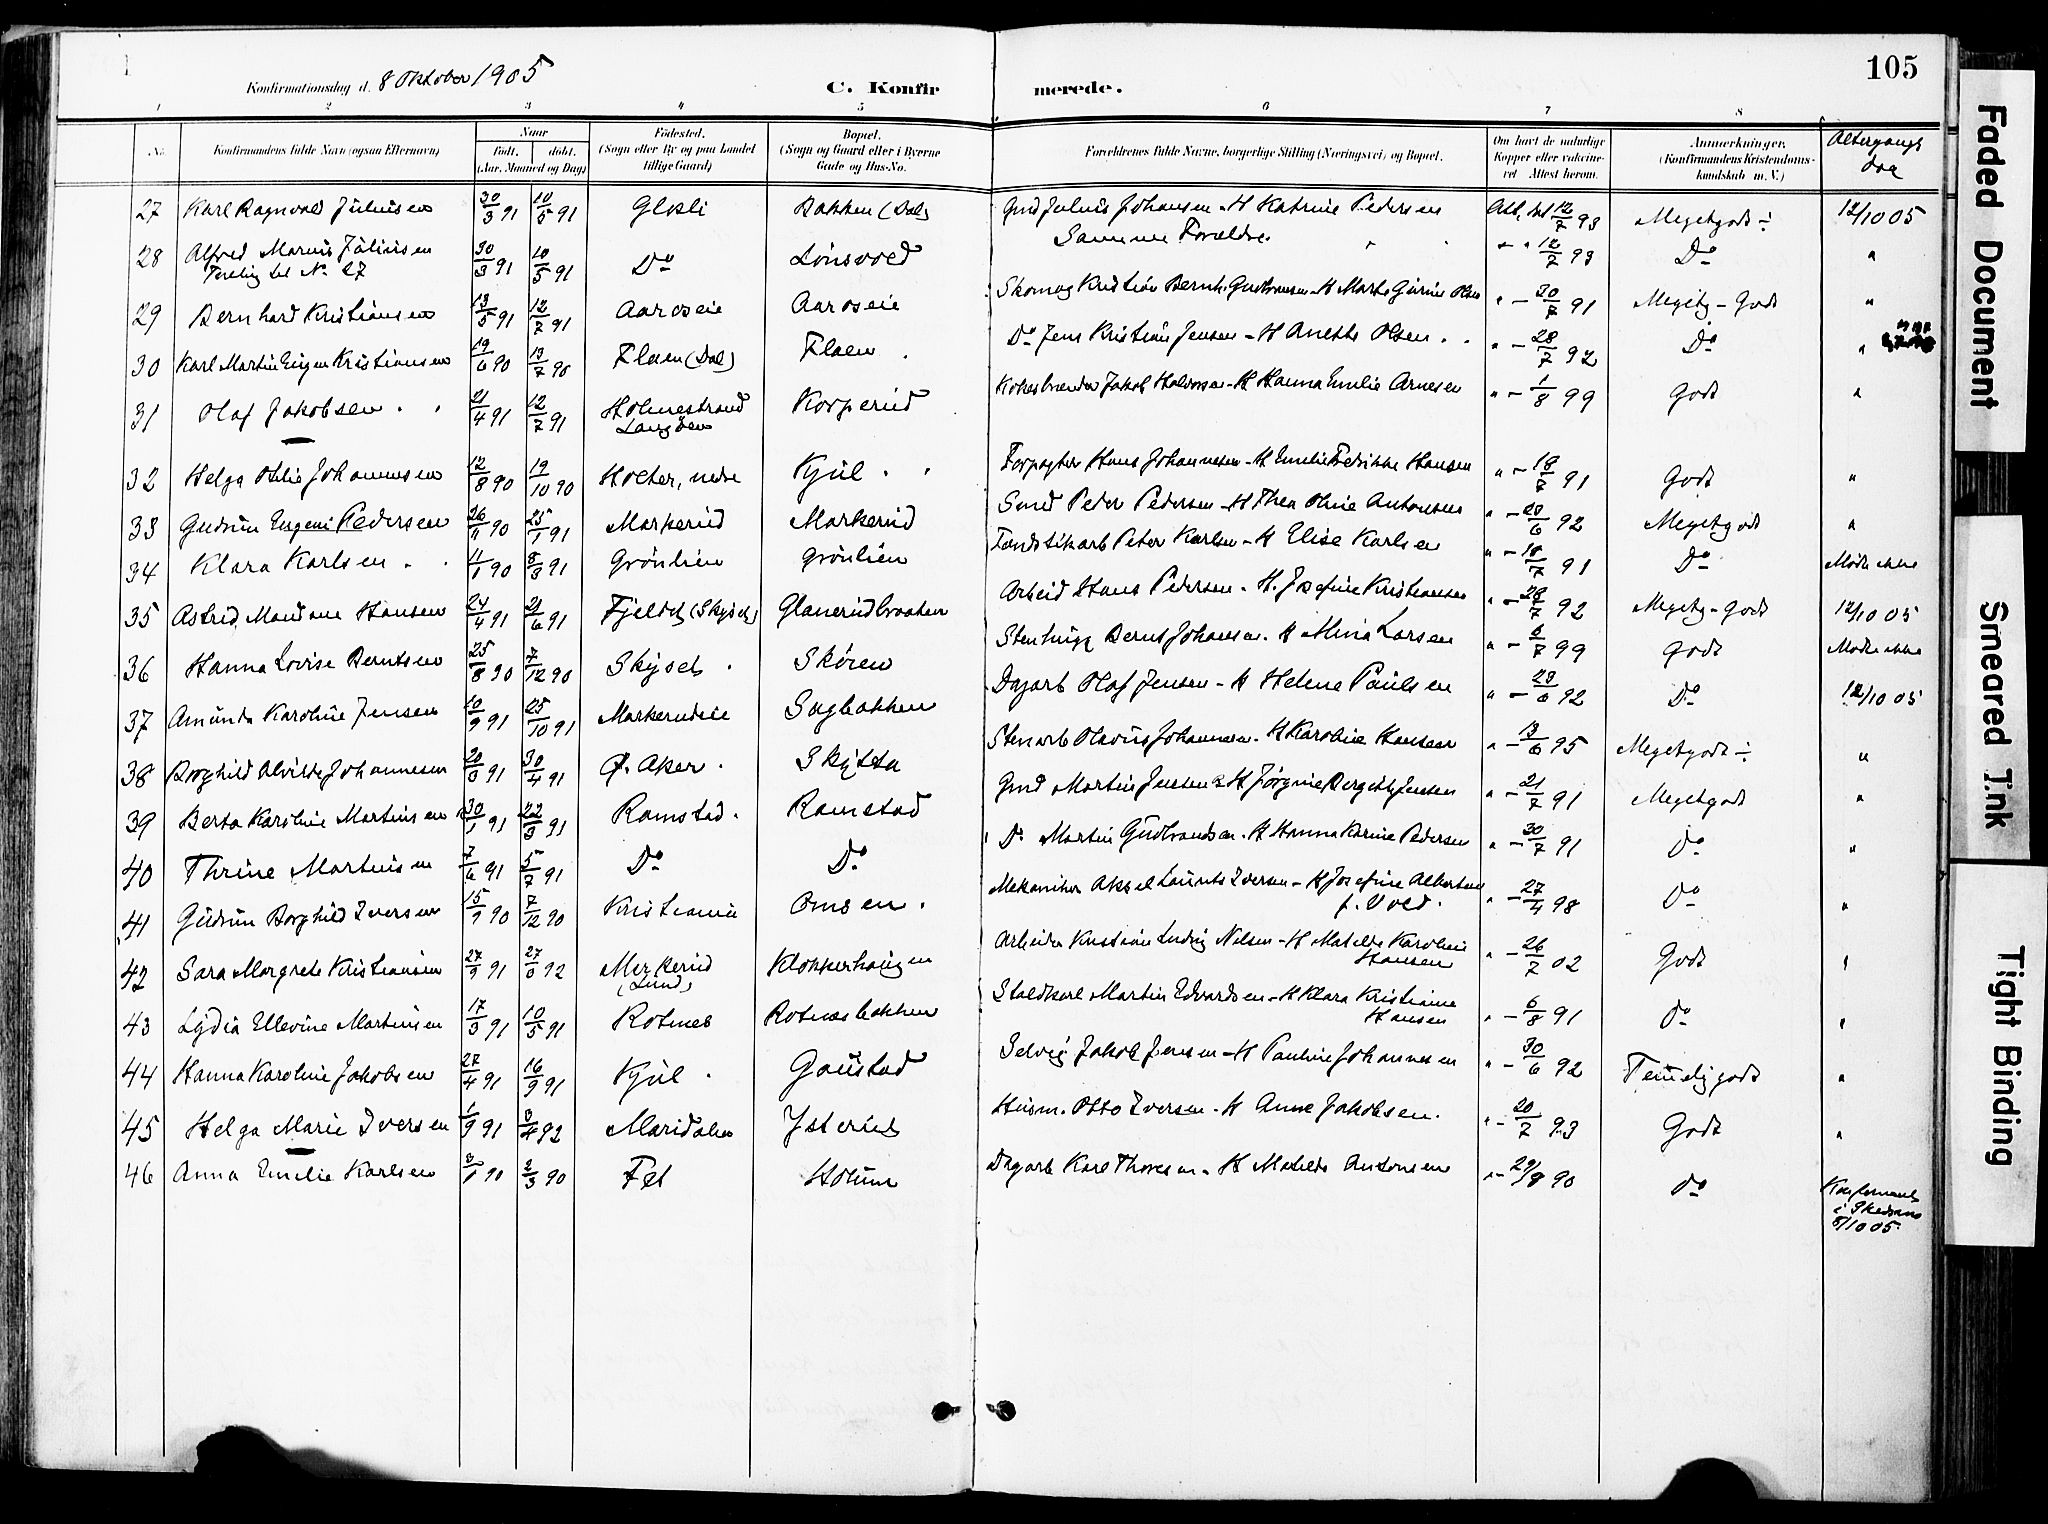 105
Konfirmationsdag d. 8 Oktober 1905
C. Konfirmerede.
1 2 3 4 5 6 7 8
No.
Konfirmandens fulde Navn (ogsaa Efternavn)
Naar
Født. døbt.
(Aar, Maaned og Dag)
Fødested.
(Sogn eller By og paa Landet
tillige Gaard)
Bopæl.
(Sogn og Gaard eller i Byerne
Gade og Hus-No.
Forældrenes fulde Navne, borgerlige Stilling (Næringsvei) og Bopæl.
Om havt de naturlige
Kopper eller vakcine-
ret Attest herom.
Anmerkninger.
(Konfirmandens Kristendoms-
kundskab m. V.)
Altergangs
dag
27 Karl Ragnvald Juliusen 30/3 91 10/5 91 Bakken (Dal) Gmd Julius Johansen - H Katrine Pedersen Att. 12/7 93 Megetgodt ÷ 12/10 05
28 Alfred Marius Juliusen 30/3 91 10/5 91 Do Lönsvold Samme Forældre " - 12/7 93 Do "
Tvilling til No 27
29 Bernhard Kristiansen 13/5 91 12/7 91 Aaroseie Aaroseie Skomag Kristian Bernh. Gudbransen - H Marte Gurine Olsen " - 30/7 91 Megetg - Godt "
30 Karl Martin Eugen Kristiansen 19/6 90 13/7 90 Flaen (Dal) Flaen Do Jens Kristian Jensen - H Anette Olsen " - 28/7 92 Do "
31 Olaf Jakobsen 21/4 91 12/7 91 Holmestrand Korperud Jakob Halvorsen - H Hanna Emilie Arnesen " - 1/8 99 Godt "
Langöen
32 Helga Otilie Johannesen 12/8 90 19/10 90 Holter, nedre Kjul Forpagter Hans Johannesen - H Emilie Fredrikke Hansen " - 18/7 91 Godt "
33 Gudrun Eugeni Pedersen 26/11 90 25/1 91 Markerud Markerud Smed Peder Pedersen - H Thea Oline Antonsen " - 28/6 92 Megetgodt "
34 Klara Karlsen 90 8/3 91 Grönlien Grönlien Peter Karlsen - H Elise Karlsen " - 18/7 91 Do Mödte ikke
35 Astrid Mandane Hansen 24/4 91 21/6 91 Glanerudbraaten Arbeid Hans Pedersen - H. Josefine Kristiansen " - 28/7 92 Megetg - Godt 12/10 05
36 Hanna Lovise Berntsen 25/8 90 7/12 90 Skyset Skören Stenhugg Bernt Johansen - H Mina Larsen " - 6/7 99 Godt Mödte ikke
37 Amunda Karoline Jensen 10/9 91 25/10 91 Markerudeie Sagbakken Dagarb Olaf Jensen - H Helene Paulsen " - 23/6 92 Do 12/10 05
38 Borghild Alvilde Johannesen 20/3 91 30/4 91 Ø. Aker Skytta Stenarb Olavus Johannesen - H Karoline Hansen " - 13/6 95 Megetgodt ÷ "
39 Berta Karoline Martinsen 30/1 91 22/3 91 Ramstad Ramstad Gmd Martin Jensen & H Jörgine Bergitte Jensen " - 21/7 91 Megetgodt "
40 Thrine Martinsen 7/6 91 5/7 91 Do Do Do Martin Gudbrandsen - H Hanna Karine Pedersen " - 30/7 91 Do "
41 Gudrun Borghild Iversen 15/9 90 7/12 90 Kristiania Omsen Mekaniker Aksel Laurits Iversen - H Josefine Albertine " - 27/4 98 Do "
f. Vold
42 Sara Margrete Kristiansen 27/9 91 92 Merkerud Klokkerhaugen Arbeider Kristian Ludvig Nilsen - H Matilde Karoline " - 26/7 02 Godt "
(Lund) Hansen
43 Lydia Ellevine Martinsen 17/3 91 10/5 91 Rotnes Rotnesbakken Staldkarl Martin Edvardsen - H Klara Kristiane " - 6/8 91 Do "
Hansen
44 Hanna Karoline Jakobsen 27/4 91 16/9 91 Kjul Gaustad Selveig Jakob Jensen - H Pauline Johannesen " - 30/6 92 Temeligodt "
45 Helga Marie Iversen 1/9 91 3/4 92 Maridalen Ysterud Husm. Otto Iversen - H Anne Jakobsen " - 20/7 93 Godt "
46 Anna Emilie Karlsen 3/1 90 2/3 90 Fet Holum Dagarb Karl Thoresen - H Matilde Antonsen " - 29/8 90 Do Konfirmeret
i Skedsmo
8/10 05.
Faded Document
Smeared Ink
Tight Binding